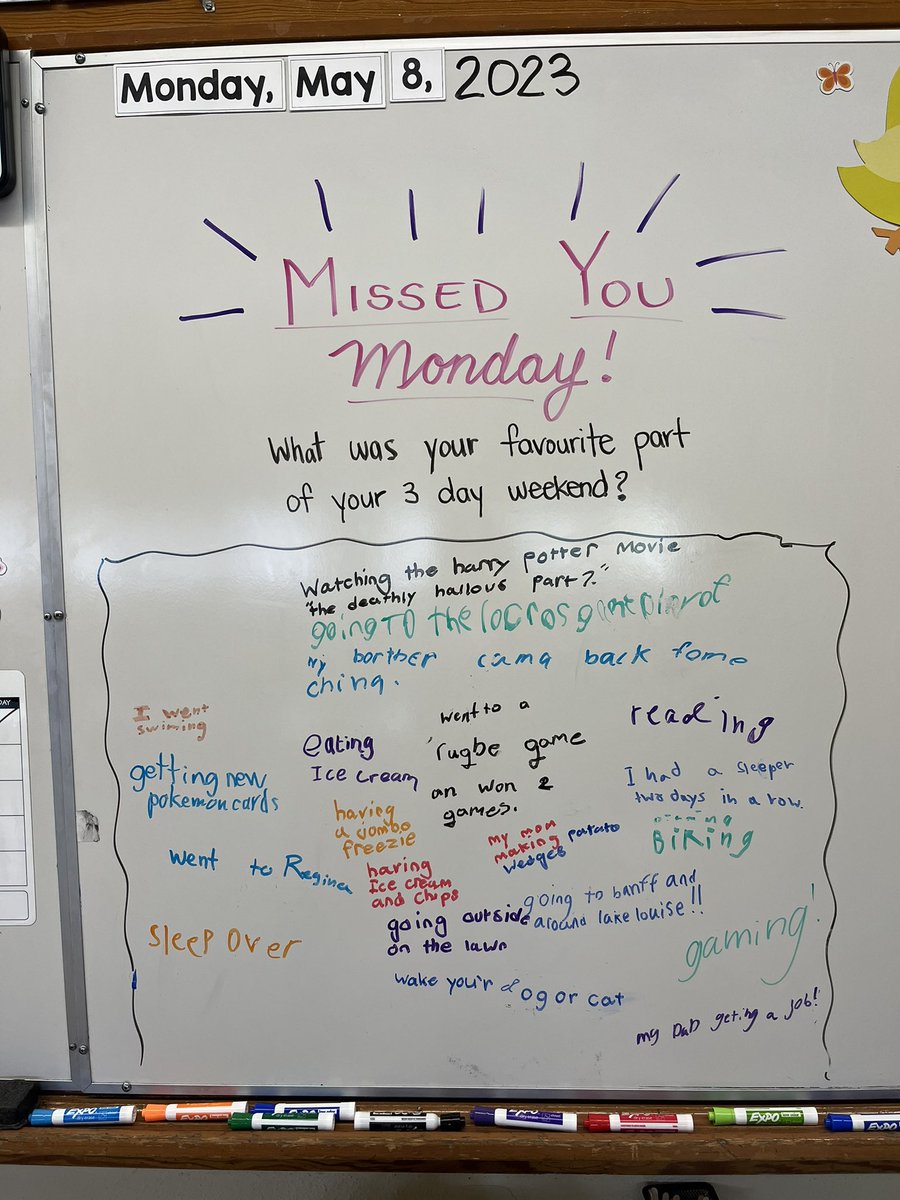 Monday, May 8, 2023
MISSED YOU
Monday!
What was your favourite part
of your 3 day weekend?
Watching the harry potter movie
"the deathly hallous part 2."
going TO the locros game
My borther cama back fome
ching.
I went
swiming
getting new
pokemon cards
went to Regina
Sleep Over
eating
Ice cream
went to a
rugbe game
an won 2
games.
having
a jombo
freezie
having
Ice cream
and chips
my mom
making patato
wedges
reading
I had a sleeper
two days in a row.
BiKing
going to banff and
around lake louise!!
going outside
on the lawn
gaming!
wake you'r dog or cat
my DaD geting a job!
EXPO
EXPO
EXPO
EXPO
EXPO
EXPO
EXPO
EXPO